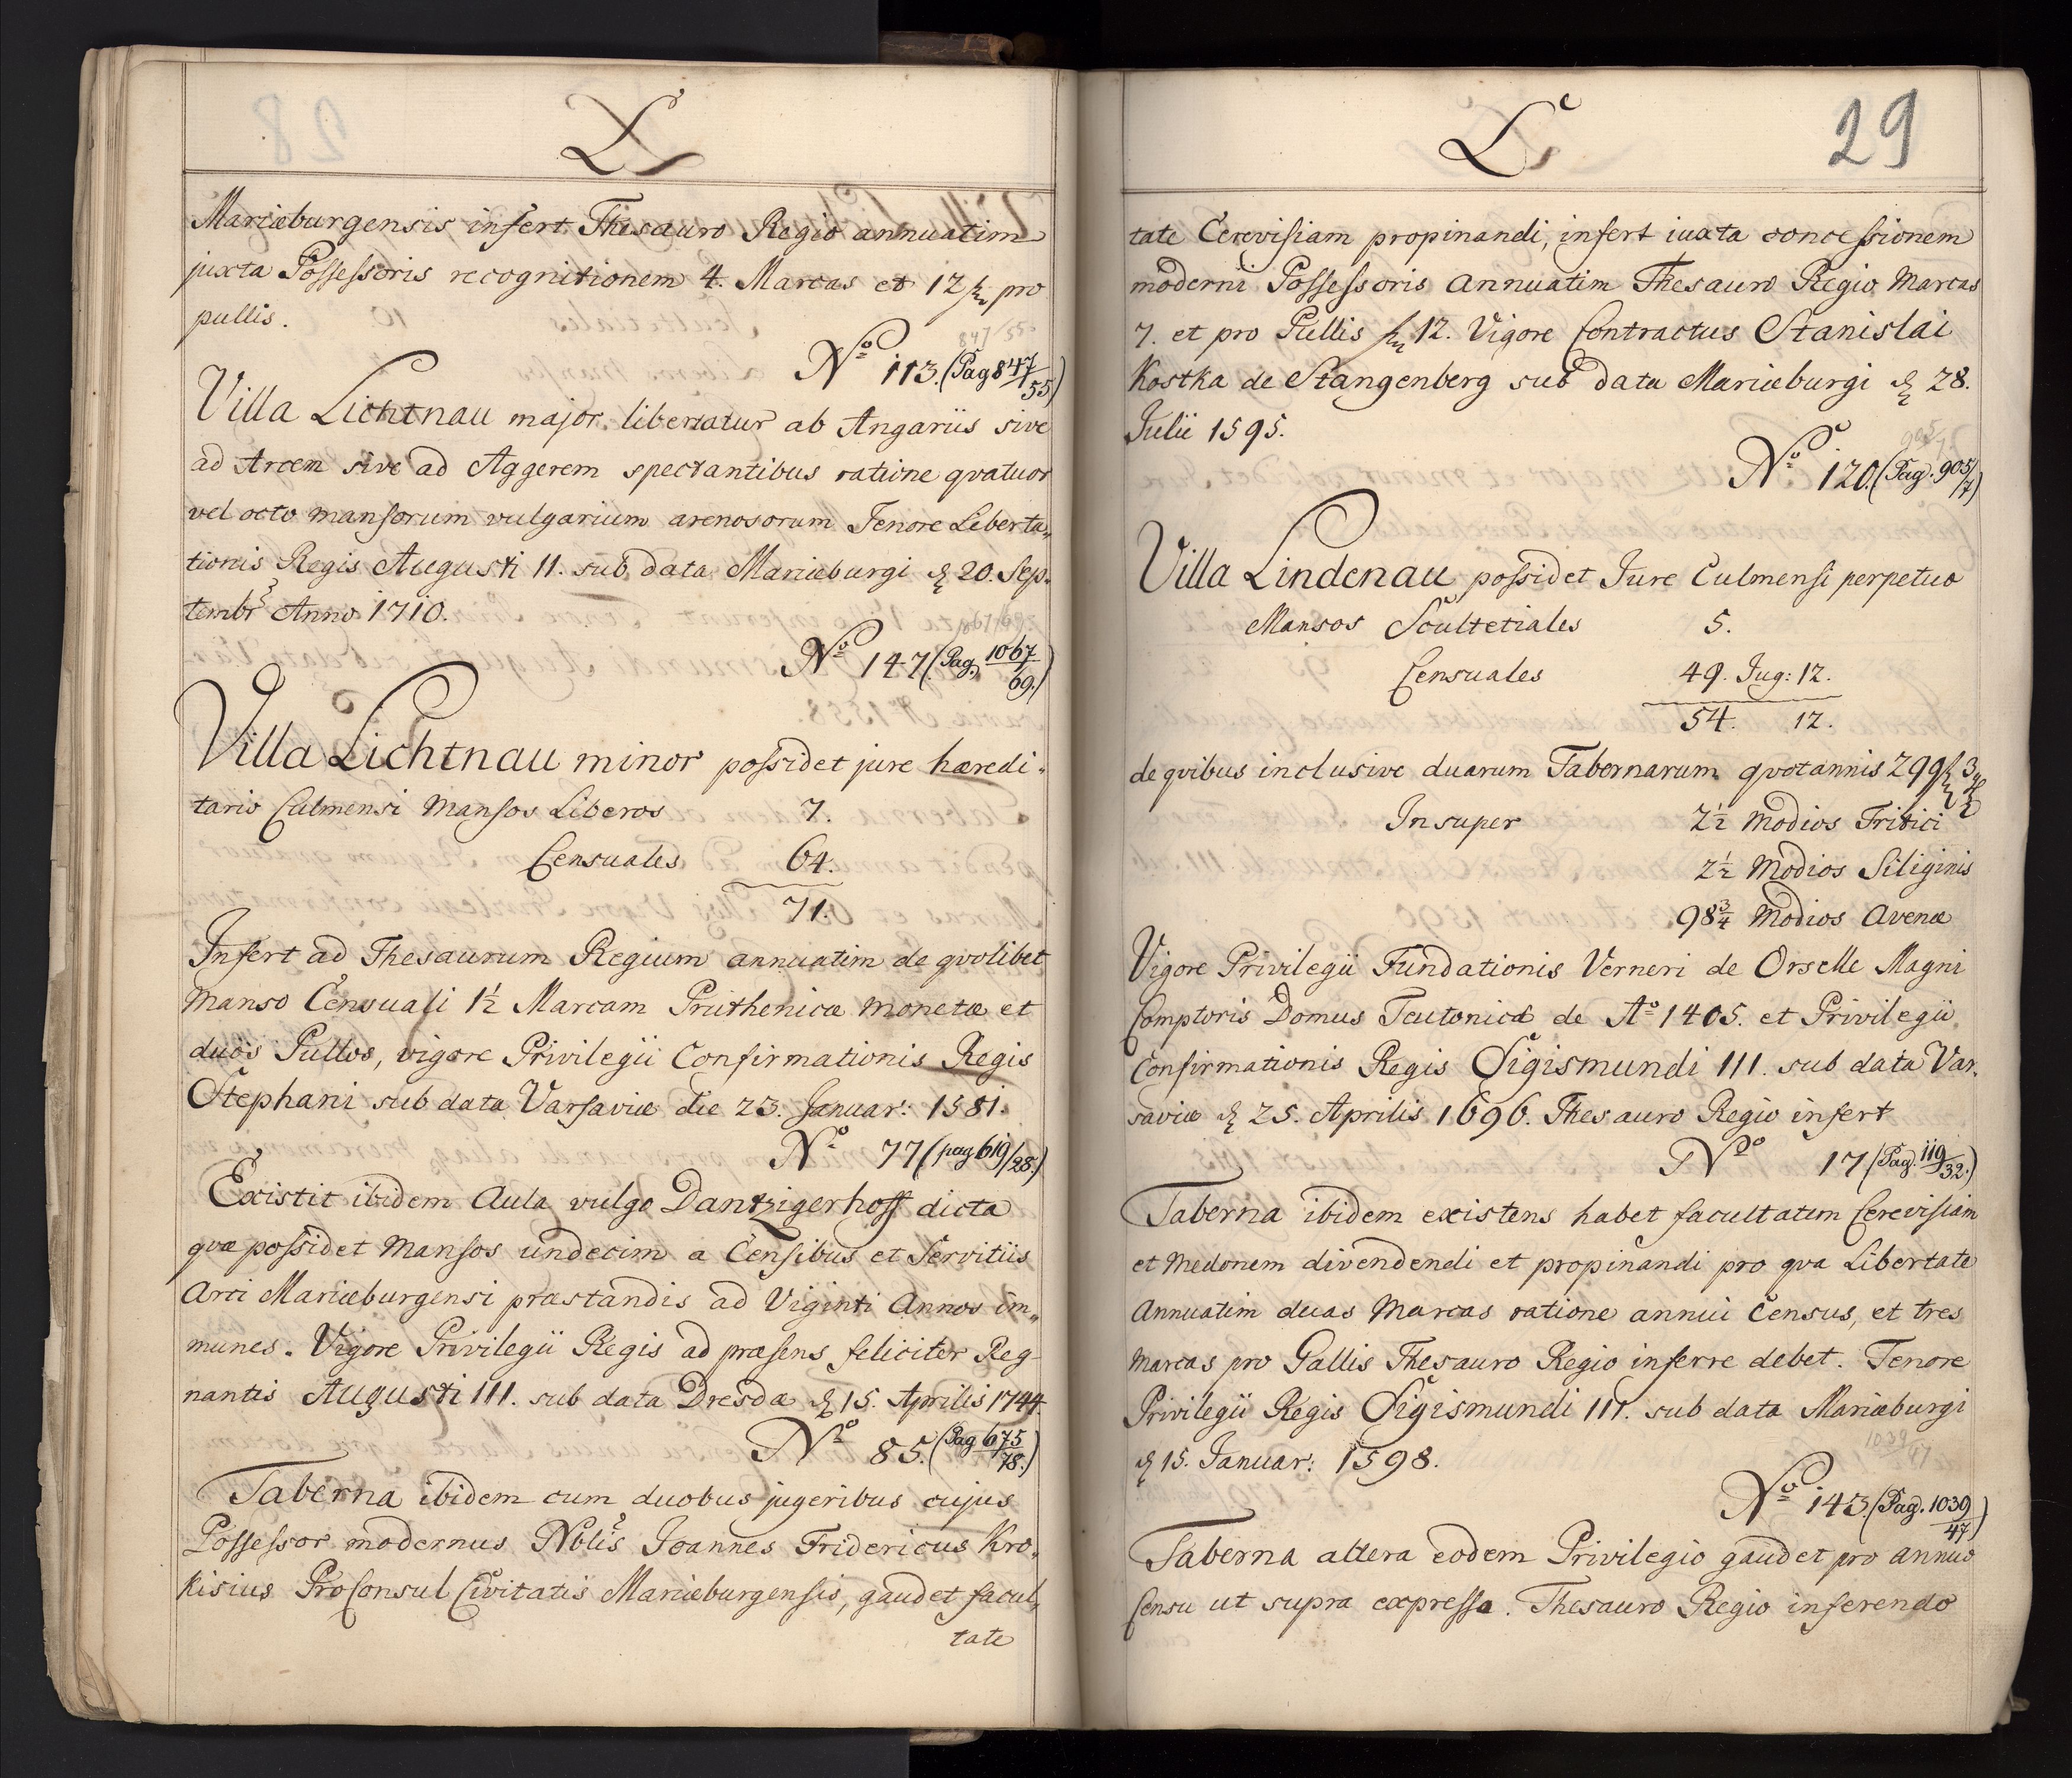 L
Mariæburgensis infert Thesauro Regio annuatim
juxta Possessoris recognitionem 4. Marcas et 12 pro
pullis.
No 113. (Pag 847/55)
Villa Lichtnau major libertatur ab Angariis sive
ad Arcem sive ad Aggerem spectantibus ratione qvatuor
vel octo mansorum vulgarium arenosorum Tenore Liberta„
tionis Regis Augusti II. sub data Mariæburgi d 20. Sep„
tembr Anno 1710.
No 147 (Pag. 1067/69.)
Villa Lichtnau minor possidet jure hæredi„
tario Culmensi Mansos Liberos 7.
Censuales 64.
71.
Infert ad Thesaurum Regium annuatim de qvolibet
Manso Censuali 1½ Marcam Pruthenicæ monetæ et
duos Pullos, vigore Privilegii Confirmationis Regis
Stephani sub data Varsaviæ die 23. Januar: 1581.
No 77 (pag 619/28.)
Existit ibidem Aula vulgo Dantzigerhoff dicta
qvæ possidet Mansos undecim a Censibus et Servitiis
Arci Mariæburgensi præstandis ad Viginti Annos im„
munes. Vigore Privilegii Regis ad præsens feliciter Reg
nantis Augusti III. sub data Dresdæ d 15. Aprilis 1744.
No 85. (Pag 675/78.)
Taberna ibidem cum duobus jugeribus cujus
Possessor modernus Nblis Joannes Fridericus Kro„
Kisius ProConsul Civitatis Mariæburgensis, gaudet facul„
tate
L
29
tate Cerevisiam propinandi, infert iuxta concessionem
moderni Possessoris Annuatim Thesauro Regio Marcas
7. et pro Pullis 12. Vigore Contractus Stanislai
Kostka de Stangenberg sub data Mariæburgi d 28.
Julii 1595.
No 120. (Pag. 905/7)
Villa Lindenau possidet Jure Culmensi perpetuo
Mansos Scultetiales 5.
Censuales 49. Jug: 12.
54. 12.
de qvibus inclusive duarum Tabernarum qvotannis 299 3
Insuper 2½ Modios Tritici
2½ Modios Siliginis
98¾ Modios Avenæ
Vigore Privilegii Fundationis Verneri de Orselle Magni
Comptoris Domus Teutonicæ de Ao 1405. et Privilegii
Confirmationis Regis Sigismundi III. sub data Var„
saviæ d 25. Aprilis 1696. Thesauro Regio infert
No 17 (Pag. 119/32.)
Taberna ibidem existens habet facultatem Cerevisiam
et Medonem divendendi et propinandi pro qva Libertate
Annuatim duas Marcas ratione annui Census, et tres
Marcas pro Gallis Thesauro Regio inferre debet. Tenore
Privilegii Regis Sigismundi III. sub data Mariæburgi
d 15. Januar: 1598.
No 143. (Pag. 1039/47)
Taberna altera eodem Privilegio gaudet pro annuo
Censu ut supra expresso. Thesauro Regio inferendo